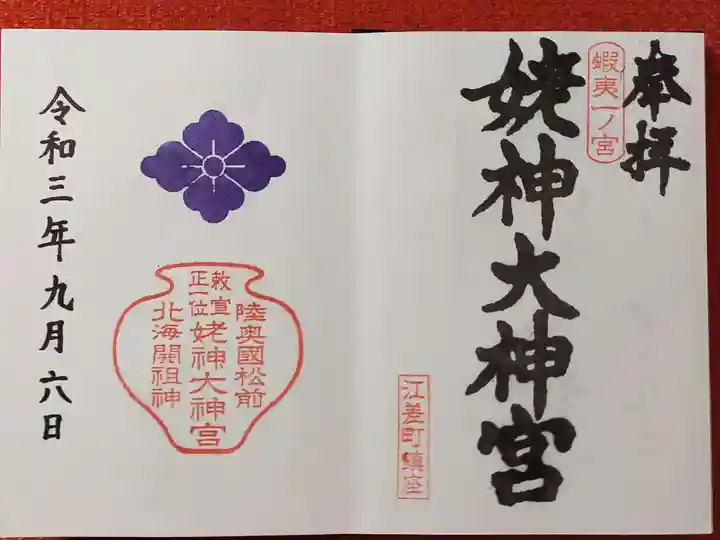 奉拝
蝦夷一ノ宮
姥神大神宮
江差町鎮座
陸奥國松前
敕宣
正一位
姥神大神宮
北海開祖神
令和三年九月六日